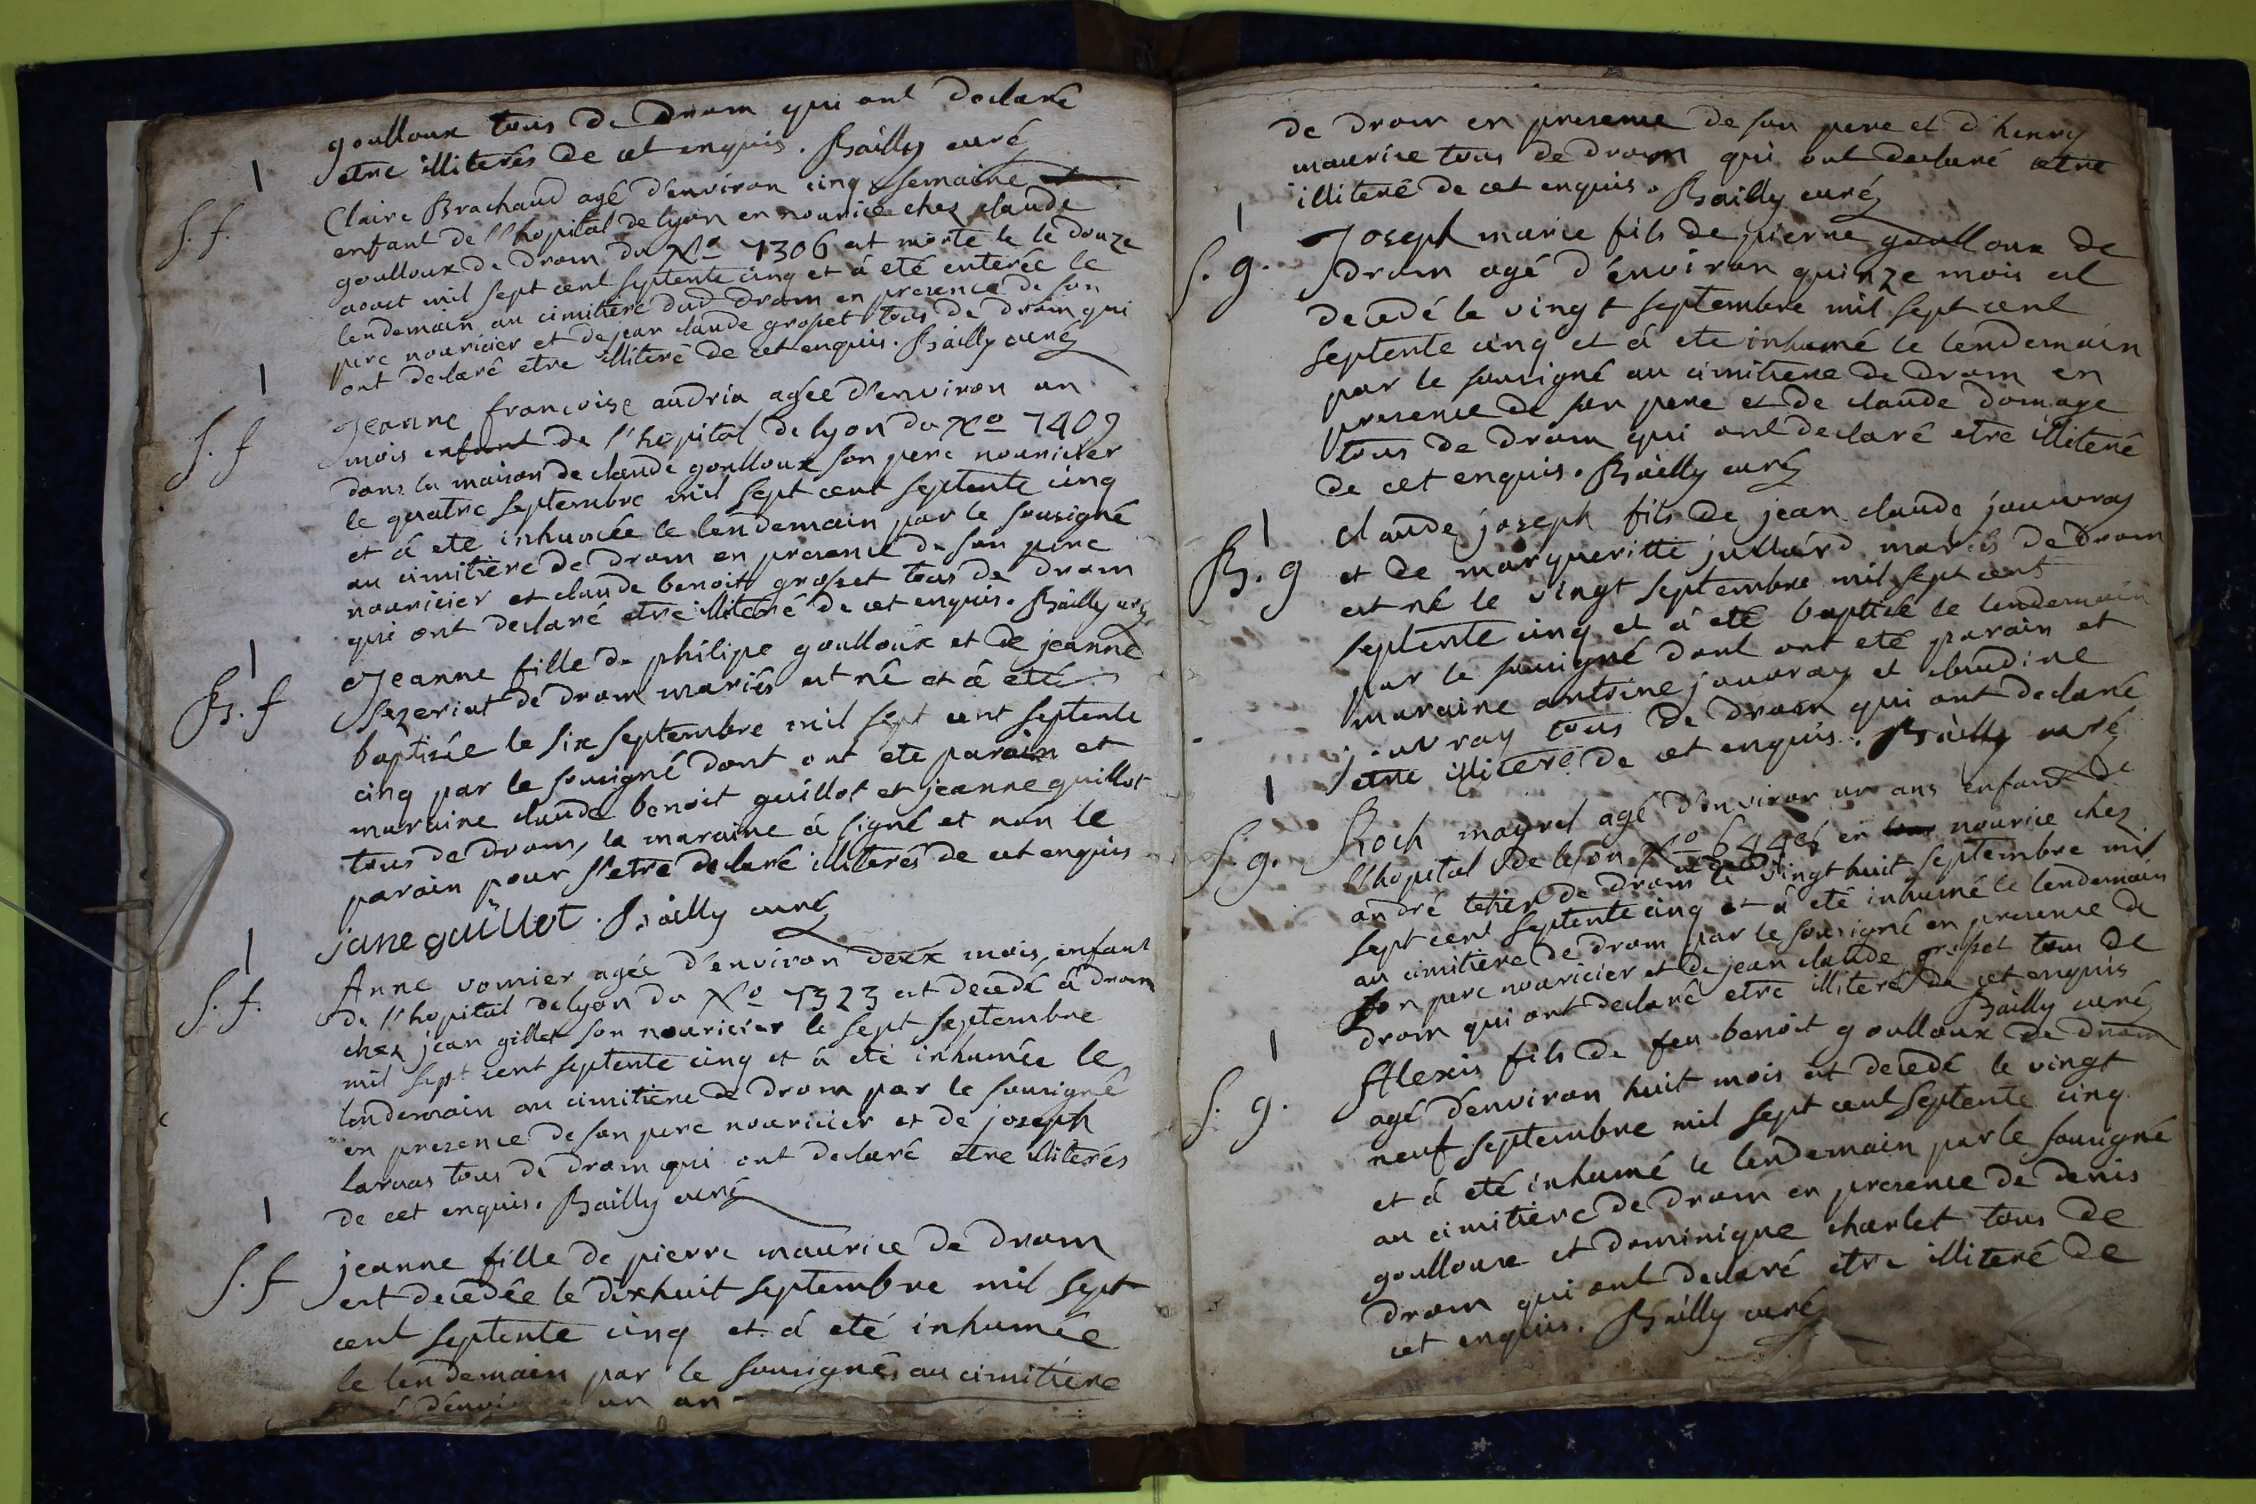 goulloux tous de Drom qui ont declaré
etre illiterés de cet enquis. Bailly curé
1
S. f.
Claire Brachaud agé d'environ cinq semaine
enfant de l'hopital de lyon en nourice chez claude
goulloux de Drom du No 7306 est morte le le douze
aoust mil sept cent septente cinq et á eté enterée le
lendemain au cimitiere dud Drom en presence de son
pere nouricier et de jean claude groset tous de Drom qui
ont declaré etre illiteré de cet enquis. Bailly curé
1
S. f
Jeanne françoise audria agée d'environ un
mois enfant de l'hopital de lyon du No 7409
dans la maison de claude goulloux son pere nouricier
le quatre septembre mil sept cent septente cinq
et á eté inhumée le lendemain par le sousigné
au cimitiere de Drom en presence de son pere
nouricier et claude benoit groset tous de Drom
qui ont declaré etre illiteré de cet enquis. Bailly curé
1
B. f
Jeanne fille de philipe goulloux et de jeanne
sezeriat de Drom mariés est né et á eté
baptisée le six septembre mil sept cent septente
cinq par le sousigné dont ont eté parain et
maraine claude benoit guillot et jeanne guillot
tous de Drom, la maraine á signé et non le
parain pour s'etre declaré illiterés de cet enquis
jane guillot. Bailly curé
1
S. f.
Anne vomier agée d'environ deux mois, enfant
de l'hopital de lyon du No 7323 est decedé á Drom
chez jean gillet son nouricier le sept septembre
mil sept cent septente cinq et á eté inhumée le
lendemain au cimitiere de Drom par le sousigné
en presence de son pere nouricier et de joseph
laruas tous de Drom qui ont declaré etre illiterés
de cet enquis. Bailly curé
1
S. f
jeanne fille de pierre maurice de Drom
est decedée le dixhuit septembre mil sept
cent septente cinq et á eté inhumée
le lendemain par le sousigné au cimitiere
d'environ un an
de Drom en presence de son pere et d'henry
maurice tous de Drom qui ont declaré etre
illiteré de cet enquis. Bailly curé
1
S. g.
Joseph marie fils de pierre goulloux de
Drom agé d'environ quinze mois est
decedé le vingt septembre mil sept cent
septente cinq et á eté inhumé le lendemain
par le sousigné au cimitiere de Drom en
presence de son pere et de claude domage
tous de Drom qui ont declaré etre illiteré
de cet enquis. Bailly curé
1
B. g
claude joseph fils de jean claude jouvray
et de margueritte jullard mariés de Drom
est né le vingt septembre mil sept cent
septente cinq et á eté baptisé le lendemain
par le sousigné dont ont eté parain et
maraine antoine jouvray et claudine
jouvray tous de Drom qui ont declaré
etre illiteré de cet enquis. Bailly curé
1
S. g.
Roch mayret agé d'environ un ans enfant de
l'hopital de lyon No en nourice chez
andré tetier de Drom le vingt huit septembre mil
sept cent septente cinq et á eté inhumé le lendemain
au cimitiere de Drom par le sousigné en presence de
son pere nouricier et de jean claude groset tous de
Drom qui ont declaré etre illiteré de cet enquis
Bailly curé
1
S. g.
Alexis fils de feu benoit goulloux de Drom
agé d'environ huit mois est decedé le vingt
neuf septembre mil sept cent septente cinq
et á eté inhumé le lendemain par le sousigné
au cimitiere de Drom en presence de denis
goulloux et dominique charlet tous de
Drom qui ont declaré etre illiteré de
cet enquis. Bailly curé